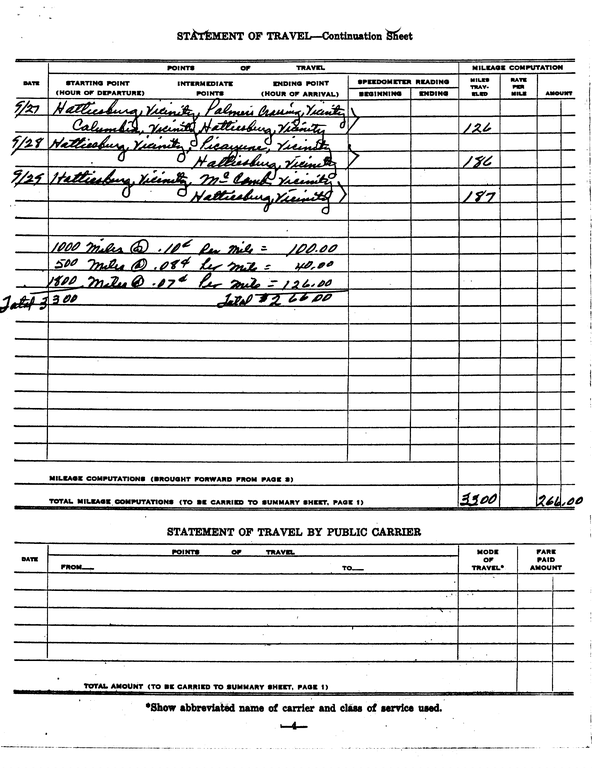 STATEMENT OF TRAVEL—Continuation Sheet
POINTS OF TRAVEL MILEAGE COMPUTATION
DATE STARTING POINT (HOUR OF DEPARTURE) INTERMEDIATE POINTS ENDING POINT (HOUR OF ARRIVAL) SPEEDOMETER READING BEGINNING ENDING MILES TRAVELED RATE PER MILE AMOUNT
5/27 Hattiesburg, Vicinity, Palmers Crossing, Vicinity
Columbia, Vicinity, Hattiesburg, Vicinity 126
5/28 Hattiesburg, Vicinity, Picayune, Vicinity
Hattiesburg, Vicinity 186
5/29 Hattiesburg, Vicinity, McComb Vicinity
Hattiesburg, Vicinity 187
1000 Miles @ .10¢ Per Mile = 100.00
500 Miles @ .08¢ Per Mile = 40.00
1800 Miles @ .07¢ Per Mile = 126.00
Total 3300 Total $266.00
MILEAGE COMPUTATIONS (BROUGHT FORWARD FROM PAGE 3)
TOTAL MILEAGE COMPUTATIONS (TO BE CARRIED TO SUMMARY SHEET, PAGE 1) 3300 266.00
STATEMENT OF TRAVEL BY PUBLIC CARRIER
DATE POINTS OF TRAVEL MODE OF TRAVEL* FARE PAID AMOUNT
FROM— TO—
TOTAL AMOUNT (TO BE CARRIED TO SUMMARY SHEET, PAGE 1)
*Show abbreviated name of carrier and class of service used.
—4—